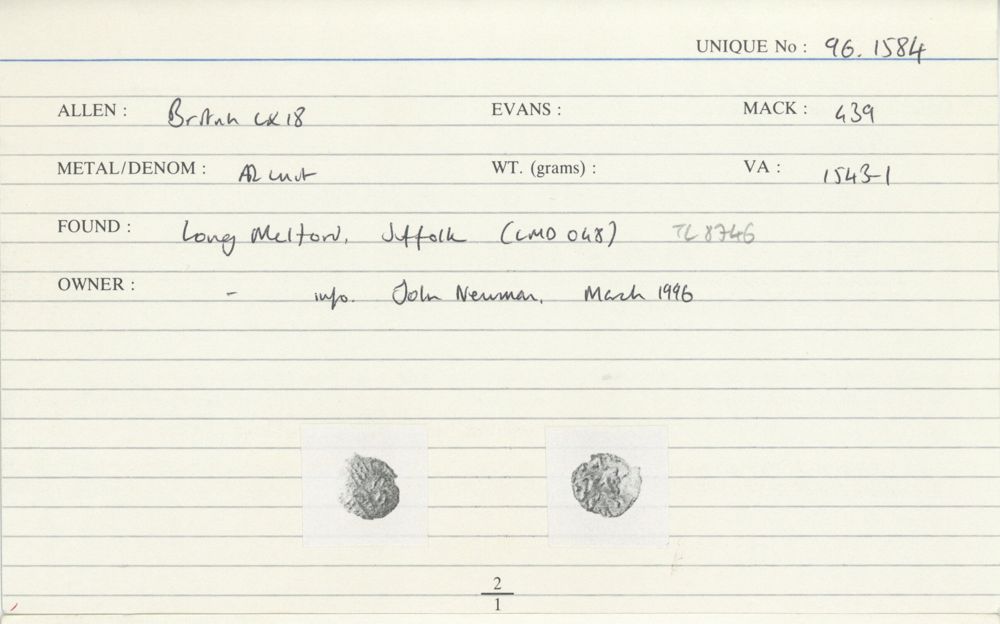 UNIQUE No : 96. 1584
ALLEN : British LX 18 EVANS : MACK : 439
METAL/DENOM : AR unit WT. (grams) : VA : 1543-1
FOUND : Long Melford, Suffolk (LMD 048) TL 8746
OWNER : - info. John Newman, March 1996
2
1